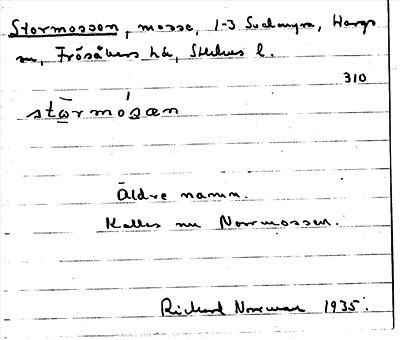 Stormossen, mosse, 1-3 Svalmyra, Hargs
sn, Frösåkers hd, Sthlms l.
310
stɷrmósæn
Äldre namn.
Kallas nu Norrmossen.
Richard Norrman 1935.